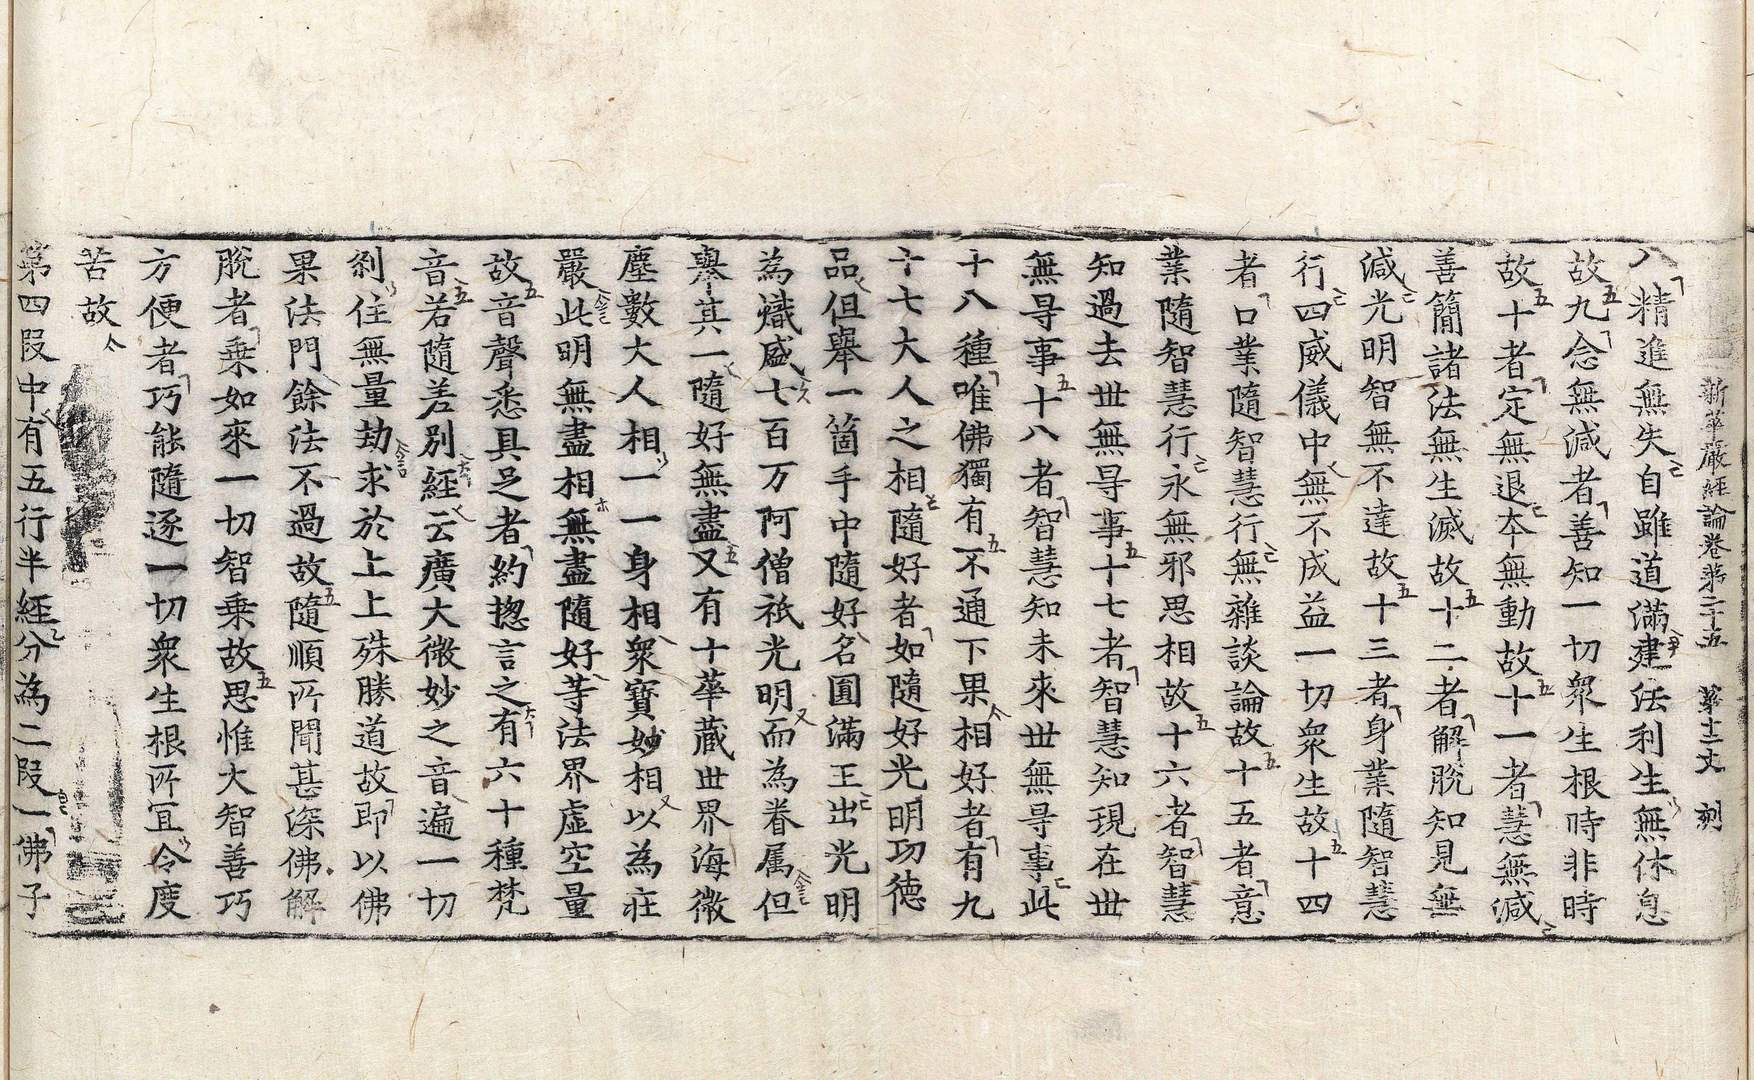 新華嚴經論卷第二十五 第十二丈 刻
八精進無失自雖道滿建法利生無休息
故九念無減者善知一切衆生根時非時
故十者定無退夲無動故十一者慧無減
善簡諸法無生滅故十二者解脫知見無
減光明智無不達故十三者身業隨智慧
行四威儀中無不成益一切衆生故十四
者口業隨智慧行無雜談論故十五者意
業隨智慧行永無邪思相故十六者智慧
知過去丗無㝵事十七者智慧知現在丗
無㝵事十八者智慧知未來丗無㝵事此
十八種唯佛獨有不通下果相好者有九
十七大人之相隨好者如隨好光明功德
品但舉一箇手中隨好名圓滿王出光明
為熾盛七百万阿僧祇光明而為眷属但
舉其一隨好無盡又有十華藏丗界海微
塵數大人相一一身相衆寶妙相以為莊
嚴此明無盡相無盡隨好等法界虛空量
故音聲悉具足者約揔言之有六十種梵
音若隨差別經云廣大微妙之音遍一切
刹住無量劫求於上上殊勝道故即以佛
果法門餘法不過故隨順所聞甚深佛解
脫者乗如來一切智乗故思惟大智善巧
方便者巧能隨逐一切衆生根所冝令度
苦故
第四段中有五行半經分為二段一佛子